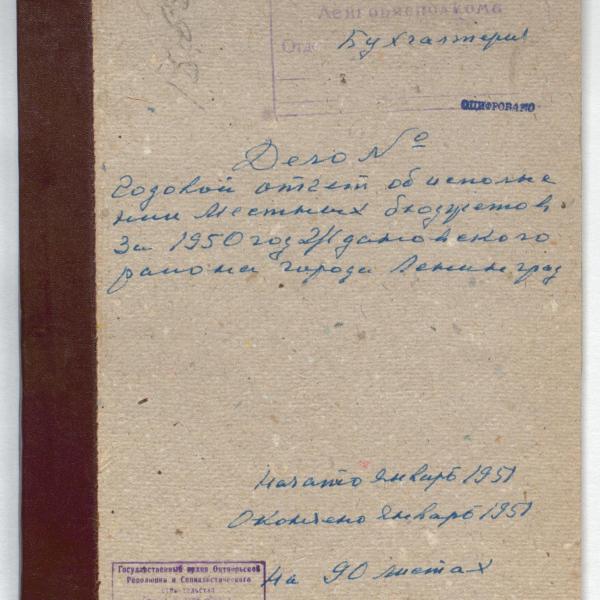 Ленгорисполкома
Отдел Бухгалтерия
ОЦИФРОВАНО
Дело №
Годовой отчет об исполне
нии местных бюджетов
за 1950 год Ждановского
района города Ленинград
Начато январь 1951
Окончено январь 1951
На 90 листах
Государственный архив Октябрьской
Революции и Социалистического